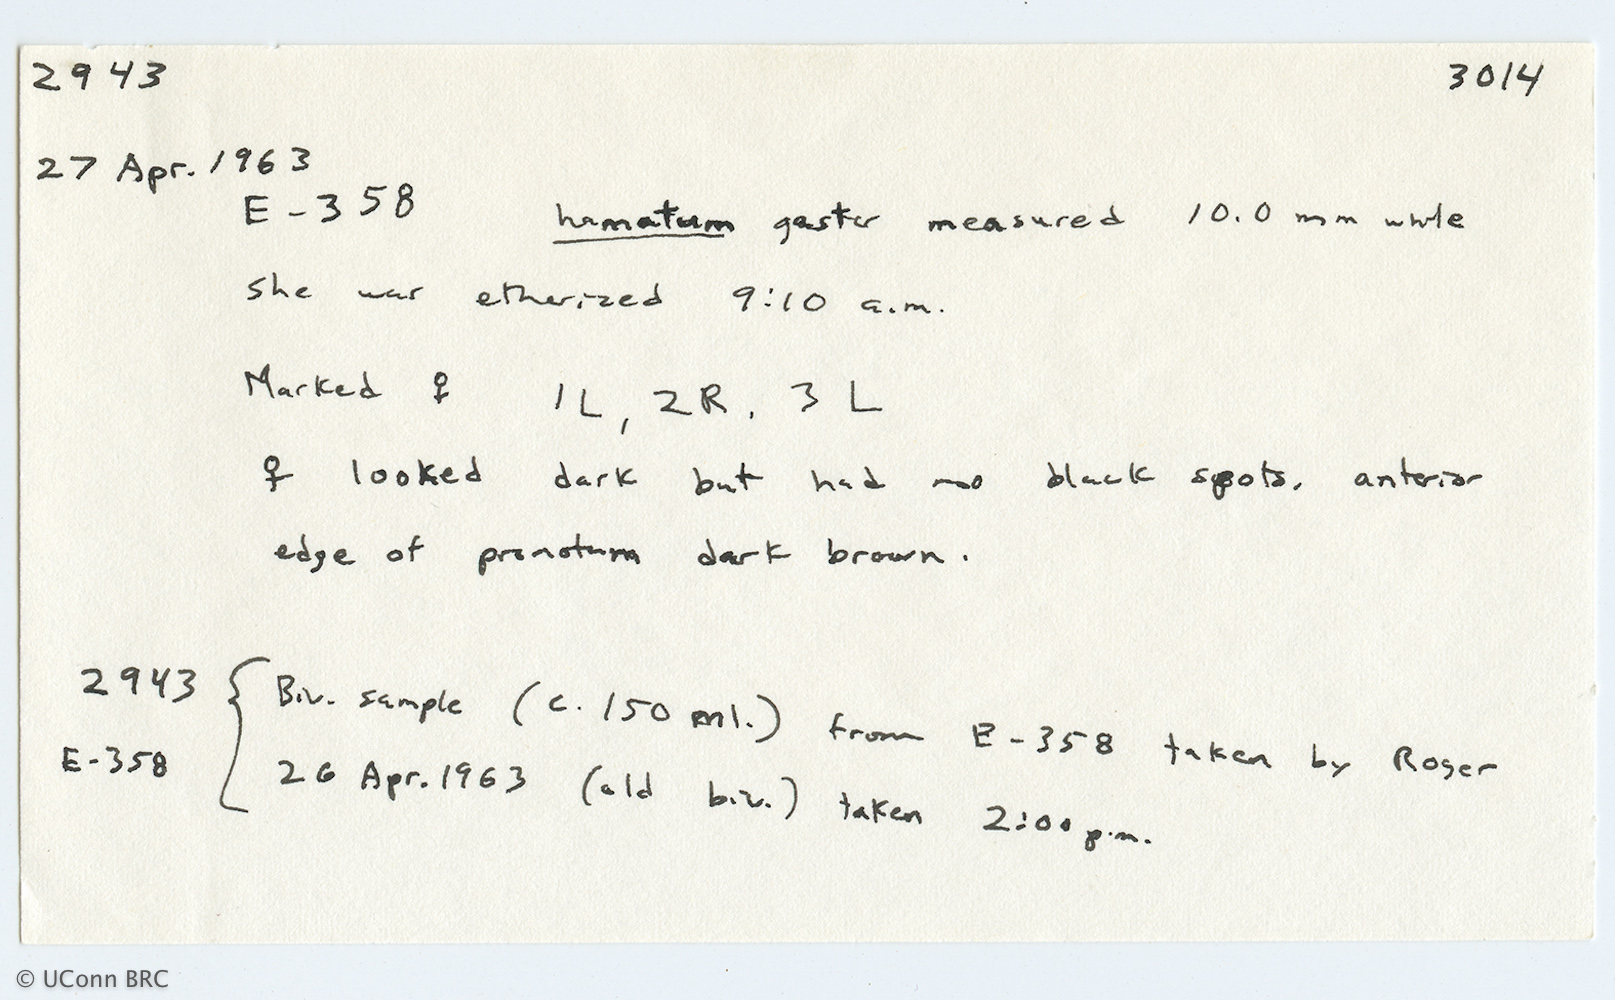 2943 3014
27 Apr. 1963
E-358 hamatum gaster measured 10.0 mm while
she was etherized 9:10 a.m.
Marked ♀ 1L, 2R, 3L
♀ looked dark but had no black spots, anterior
edge of pronotum dark brown.
2943 { Biv. sample (c. 150 ml.) from E-358 taken by Roger
E-358 26 Apr. 1963 (old biv.) taken 2:00 p.m.
© UConn BRC